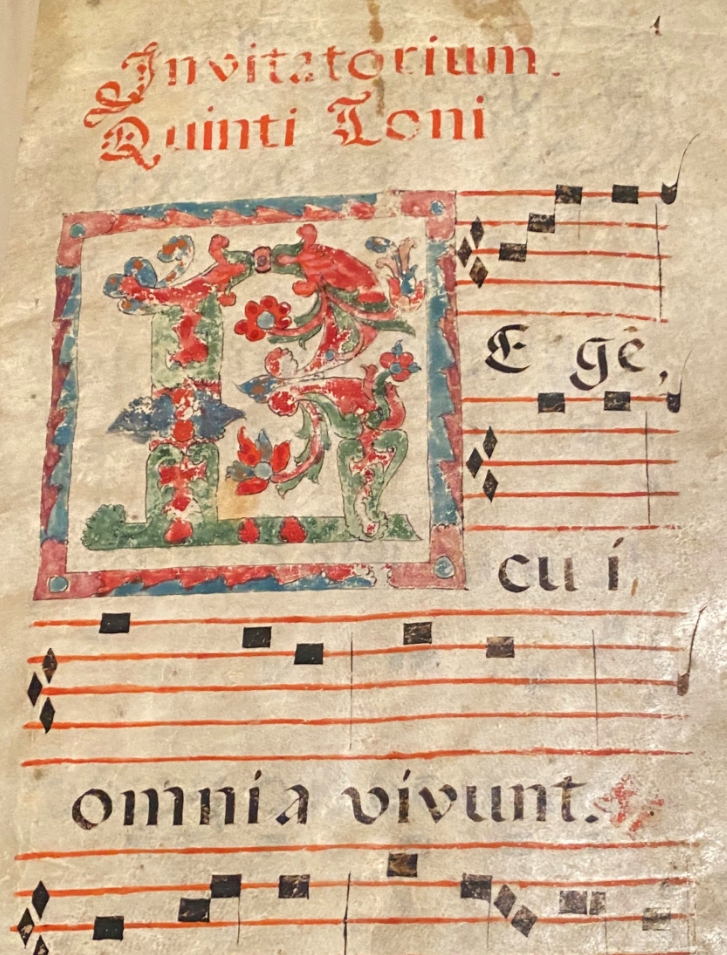 1
Invitatorium.
Quinti Toni
REgē,
cui,
omnia vivunt.